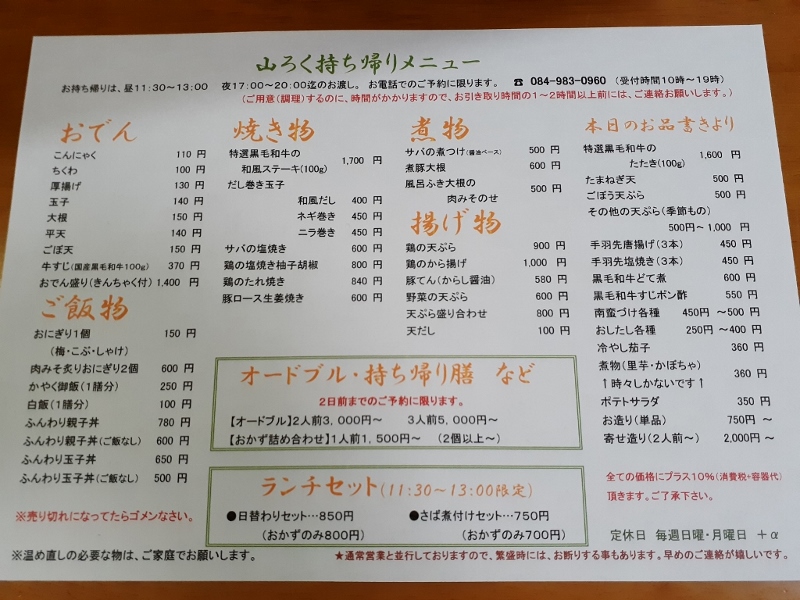 山ろく持ち帰りメニュー
お持ち帰りは、昼11:30～13:00　夜17:00～20:00迄のお渡し。 お電話でのご予約に限ります。 ☎ 084-983-0960 （受付時間10時～19時）
（ご用意（調理）するのに、時間がかかりますので、お引き取り時間の1～2時間以上前には、ご連絡お願いします。）
おでん
こんにゃく 110 円
ちくわ 100 円
厚揚げ 130 円
玉子 140 円
大根 150 円
平天 140 円
ごぼ天 150 円
牛すじ（国産黒毛和牛100g） 370 円
おでん盛り（きんちゃく付） 1,400 円
ご飯物
おにぎり1個 150 円
（梅・こぶ・しゃけ）
肉みそ炙りおにぎり2個 600 円
かやく御飯（1膳分） 250 円
白飯（1膳分） 100 円
ふんわり親子丼 780 円
ふんわり親子丼（ご飯なし） 600 円
ふんわり玉子丼 650 円
ふんわり玉子丼（ご飯なし） 500 円
※売り切れになってたらゴメンなさい。
焼き物
特選黒毛和牛の
和風ステーキ（100g） 1,700 円
だし巻き玉子
和風だし 400 円
ネギ巻き 450 円
ニラ巻き 450 円
サバの塩焼き 600 円
鶏の塩焼き柚子胡椒 800 円
鶏のたれ焼き 840 円
豚ロース生姜焼き 600 円
煮物
サバの煮つけ（醤油ベース） 500 円
煮豚大根 600 円
風呂ふき大根の
肉みそのせ 500 円
揚げ物
鶏の天ぷら 900 円
鶏のから揚げ 1,000 円
豚てん（からし醤油） 580 円
野菜の天ぷら 600 円
天ぷら盛り合わせ 800 円
天だし 100 円
本日のお品書きより
特選黒毛和牛の
たたき（100g） 1,600 円
たまねぎ天 500 円
ごぼう天ぷら 500 円
その他の天ぷら（季節もの）
500円～1,000 円
手羽先唐揚げ（3本） 450 円
手羽先塩焼き（3本） 450 円
黒毛和牛どて煮 600 円
黒毛和牛すじポン酢 550 円
南蛮づけ各種 450円 ～500 円
おしたし各種 250円 ～400 円
冷やし茄子 360 円
煮物（里芋・かぼちゃ） 360 円
↑時々しかないです↑
ポテトサラダ 350 円
お造り（単品） 750円 ～
寄せ造り（2人前～） 2,000円 ～
全ての価格にプラス10％（消費税+容器代）
頂きます。ご了承下さい。
定休日 毎週日曜・月曜日 ＋α
オードブル・持ち帰り膳 など
2日前までのご予約に限ります。
【オードブル】2人前3,000円～ 3人前5,000円～
【おかず詰め合わせ】1人前1,500円～ （2個以上～）
ランチセット（11:30～13:00限定）
●日替わりセット…850円 ●さば煮付けセット…750円
（おかずのみ800円） （おかずのみ700円）
※温め直しの必要な物は、ご家庭でお願いします。
★通常営業と並行しておりますので、繁盛時には、お断りする事もあります。早めのご連絡が嬉しいです。